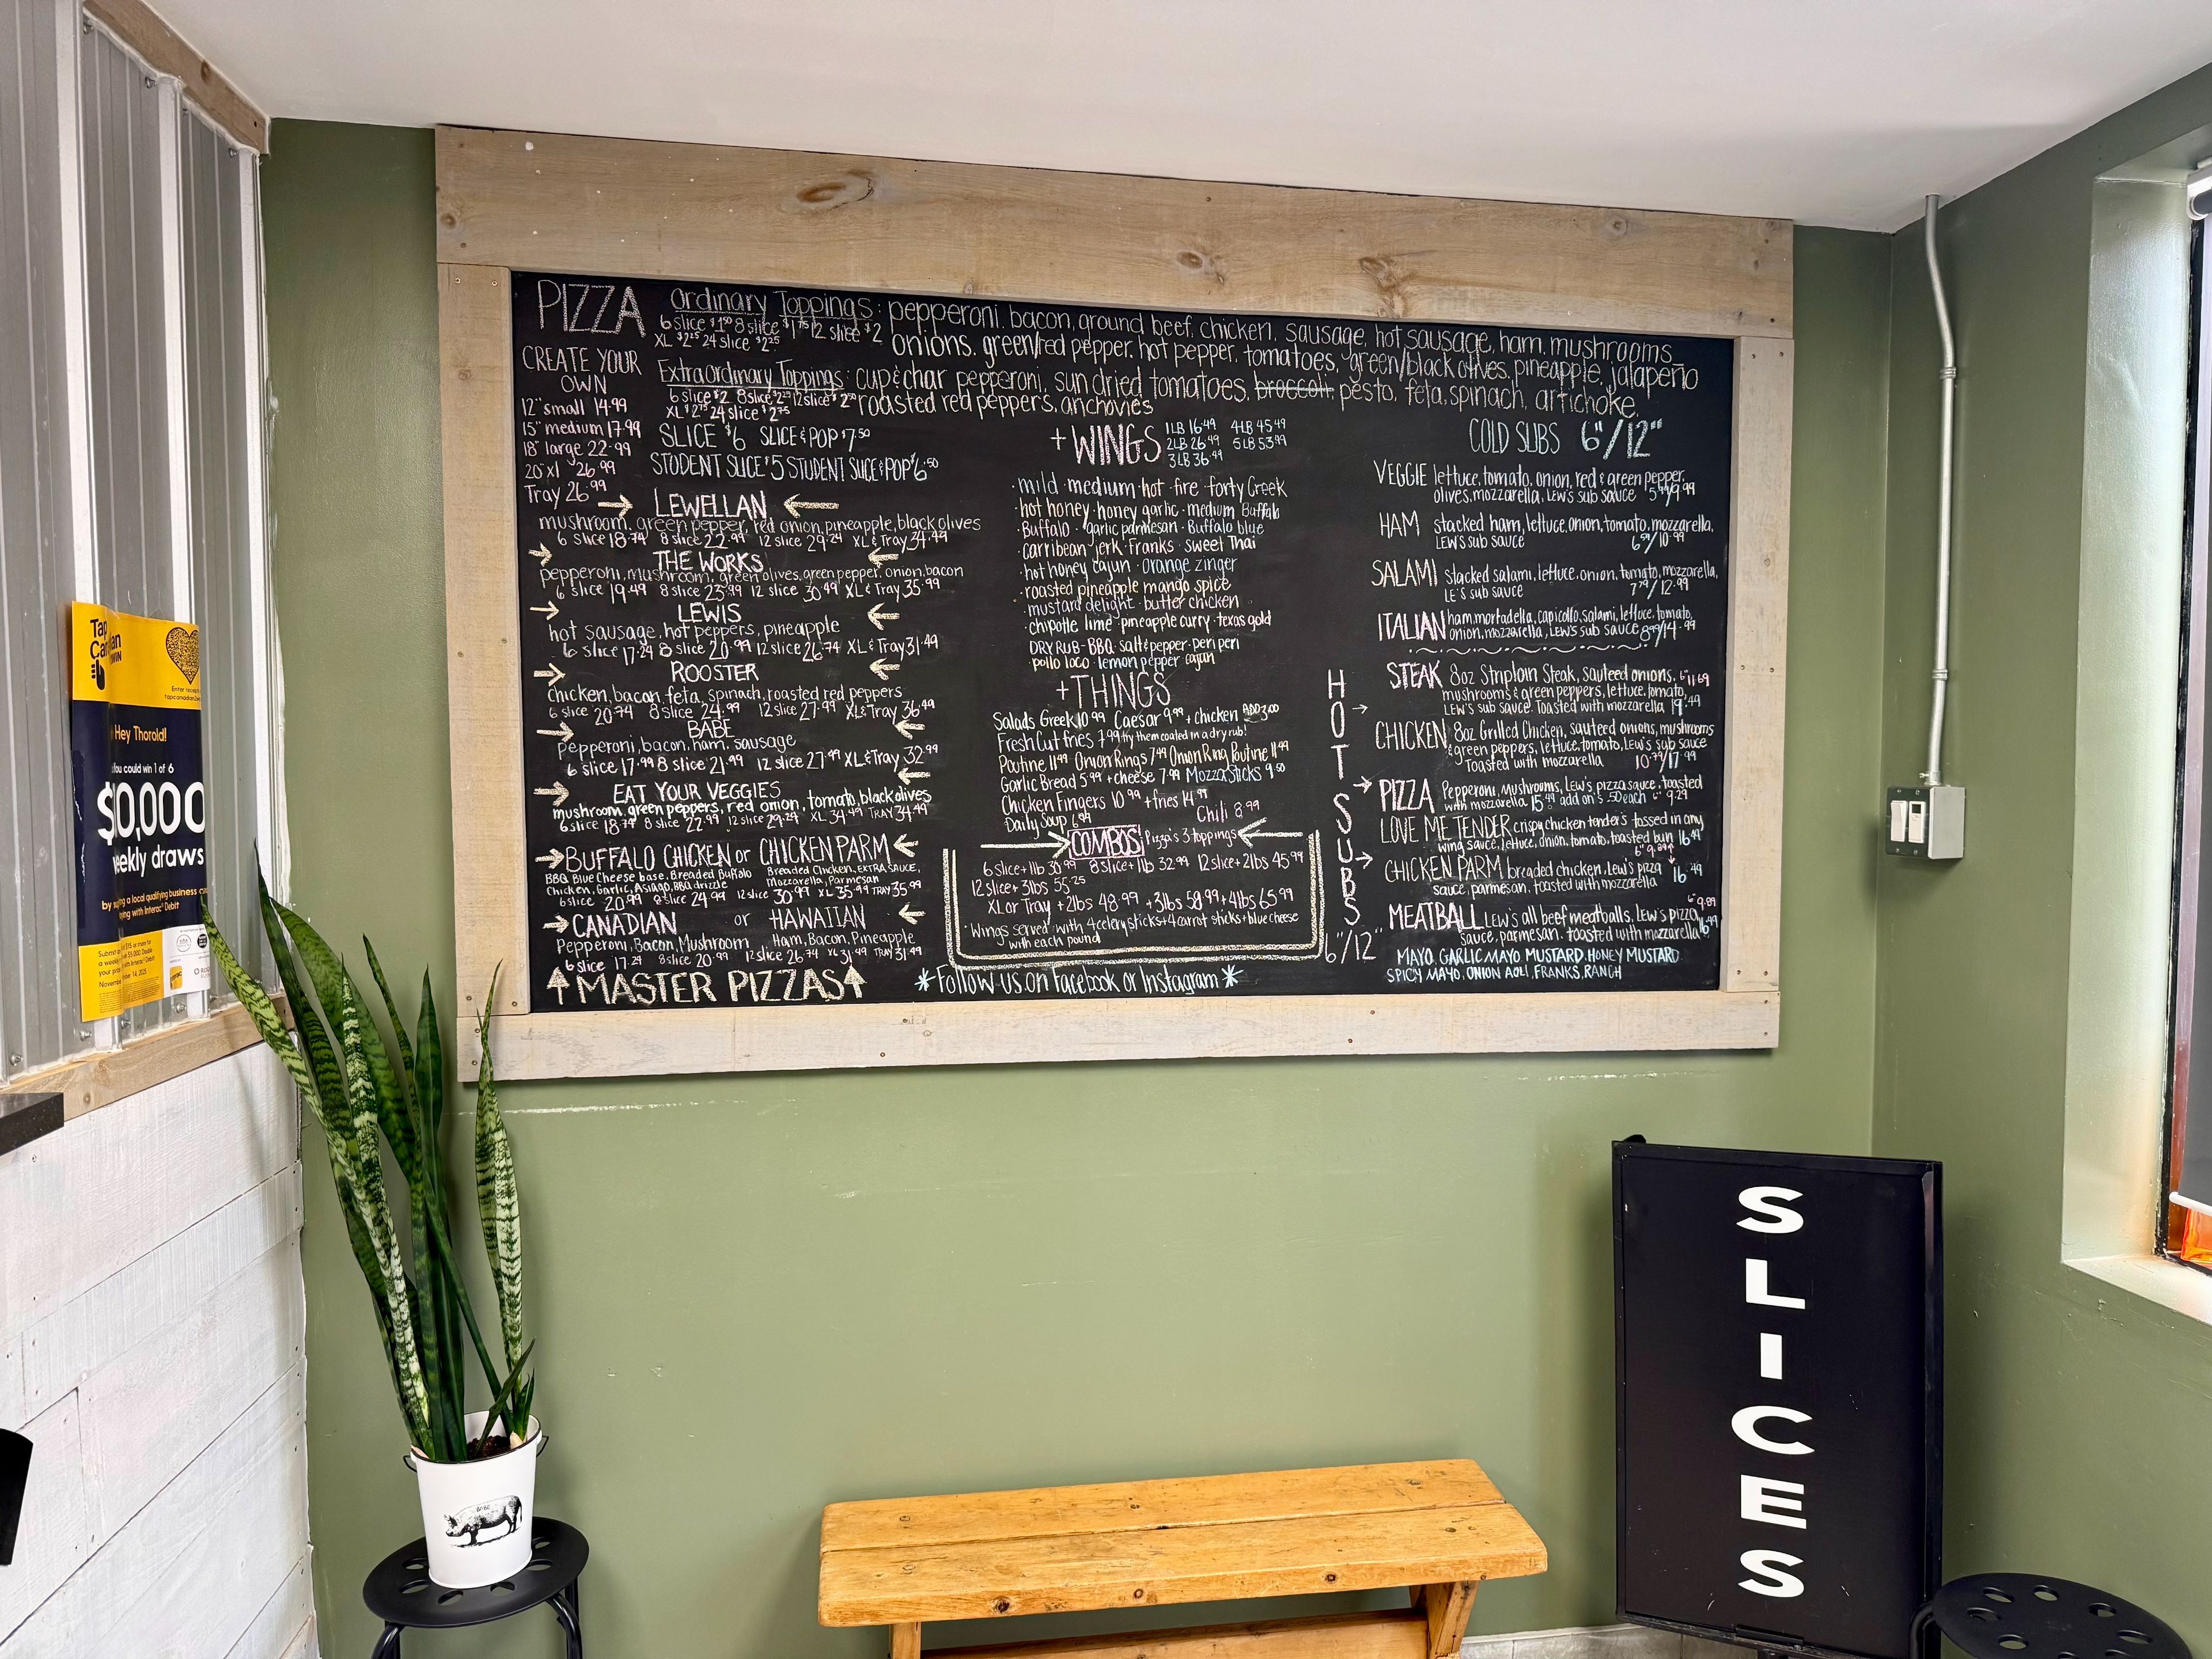 PIZZA
Ordinary Toppings: pepperoni, bacon, ground beef, chicken, sausage, hot sausage, ham, mushrooms
6 slice $1.50 8 slice $1.75 12 slice $2
XL $2.25 24 slice $2.25
onions, green/red pepper, hot pepper, tomatoes, green/black olives, pineapple, jalapeño
ExtraOrdinary Toppings: cup & char pepperoni, sun dried tomatoes, broccoli, pesto, feta, spinach, artichoke,
6 slice $2 8 slice $2.25 12 slice $2.50
XL $2.75 24 slice $2.75
roasted red peppers, anchovies
CREATE YOUR
OWN
12" small 14.99
15" medium 17.99
18" large 22.99
20" xl 26.99
Tray 26.99
SLICE $6 SLICE & POP $7.50
STUDENT SLICE $5 STUDENT SLICE & POP $6.50
→ LEWELLAN ←
mushroom, green pepper, red onion, pineapple, black olives
6 slice 18.74 8 slice 22.99 12 slice 29.24 XL & Tray 34.49
→ THE WORKS ←
pepperoni, mushroom, green olives, green pepper, onion, bacon
6 slice 19.49 8 slice 23.99 12 slice 30.49 XL & Tray 35.99
→ LEWIS ←
hot sausage, hot peppers, pineapple
6 slice 17.24 8 slice 20.99 12 slice 26.74 XL & Tray 31.49
→ ROOSTER ←
chicken, bacon, feta, spinach, roasted red peppers
6 slice 20.74 8 slice 24.99 12 slice 27.99 XL & Tray 36.49
→ BABE ←
pepperoni, bacon, ham, sausage
6 slice 17.99 8 slice 21.99 12 slice 27.49 XL & Tray 32.99
→ EAT YOUR VEGGIES ←
mushroom, green peppers, red onion, tomato, black olives
6 slice 18.74 8 slice 22.99 12 slice 29.24 XL 34.49 TRAY 34.49
→ BUFFALO CHICKEN or CHICKEN PARM ←
BBQ Blue Cheese base, Breaded Buffalo
Chicken, Garlic, Asiago, BBQ drizzle
Breaded Chicken, EXTRA SAUCE,
Mozzarella, Parmesan
6 slice 20.99 8 slice 24.99 12 slice 30.99 XL 35.99 TRAY 35.99
→ CANADIAN or HAWAIIAN ←
Pepperoni, Bacon, Mushroom Ham, Bacon, Pineapple
6 slice 17.24 8 slice 20.99 12 slice 26.74 XL 31.49 TRAY 31.49
↑ MASTER PIZZAS ↑
+ WINGS
1LB 16.49 4LB 45.49
2LB 26.49 5LB 53.99
3LB 36.49
· mild · medium · hot · fire · forty Creek
· hot honey · honey garlic · medium Buffalo
· Buffalo · garlic parmesan · Buffalo blue
· carribean jerk · Franks · sweet Thai
· hot honey cajun · orange zinger
· roasted pineapple mango spice
· mustard delight · butter chicken
· chipotle lime · pineapple curry · texas gold
DRY RUB · BBQ · salt & pepper · peri peri
· pollo loco · lemon pepper cajun
+ THINGS
Salads Greek 10.99 Caesar 9.99 + chicken ADD 3.00
Fresh Cut fries 7.99 try them coated in a dry rub!
Poutine 11.99 Onion Rings 7.49 Onion Ring Poutine 11.99
Garlic Bread 5.99 + cheese 7.99 Mozza Sticks 9.50
Chicken Fingers 10.99 + fries 14.99
Daily Soup 6.99 Chili 8.99
→ COMBOS Pizza's 3 toppings ←
6 slice + 1lb 30.99 8 slice + 1lb 32.99 12 slice + 2lbs 45.99
12 slice + 3lbs 55.25
XL or Tray + 2lbs 48.99 + 3lbs 58.99 + 4lbs 65.99
· Wings served with 4 celery sticks + 4 carrot sticks + blue cheese
with each pound
* Follow us on Facebook or Instagram *
COLD SUBS 6"/12"
VEGGIE lettuce, tomato, onion, red & green pepper,
olives, mozzarella, LEW's sub sauce 5.99/9.99
HAM stacked ham, lettuce, onion, tomato, mozzarella,
LEW'S sub sauce 6.59/10.99
SALAMI stacked salami, lettuce, onion, tomato, mozzarella,
LE'S sub sauce 7.79/12.99
ITALIAN ham, mortadella, capicollo, salami, lettuce, tomato,
onion, mozzarella, LEW's sub sauce 8.99/14.99
HOT SUBS
6"/12"
STEAK 8oz Striploin Steak, sauteed onions, 6" 11.69
mushrooms & green peppers, lettuce, tomato,
LEW's sub sauce. Toasted with mozzarella 19.49
CHICKEN 8oz Grilled Chicken, sauteed onions, mushrooms
& green peppers, lettuce, tomato, Lew's sub sauce
Toasted with mozzarella 10.79/17.99
PIZZA Pepperoni, Mushrooms, Lew's pizza sauce, toasted
with mozzarella 15.49 add on's .50 each 6" 9.29
LOVE ME TENDER crispy chicken tenders tossed in any
wing sauce, lettuce, onion, tomato, toasted bun 16.49
6" 9.89
CHICKEN PARM breaded chicken, Lew's pizza 16.49
sauce, parmesan, toasted with mozzarella
6" 9.89
MEATBALL LEW's all beef meatballs, Lew's pizza
sauce, parmesan, toasted with mozzarella 16.49
MAYO, GARLIC MAYO MUSTARD, HONEY MUSTARD
SPICY MAYO, ONION AOLI, FRANKS, RANCH
Hey Thorold!
You could win 1 of 6
0,000
weekly draws
SLICES
BABE